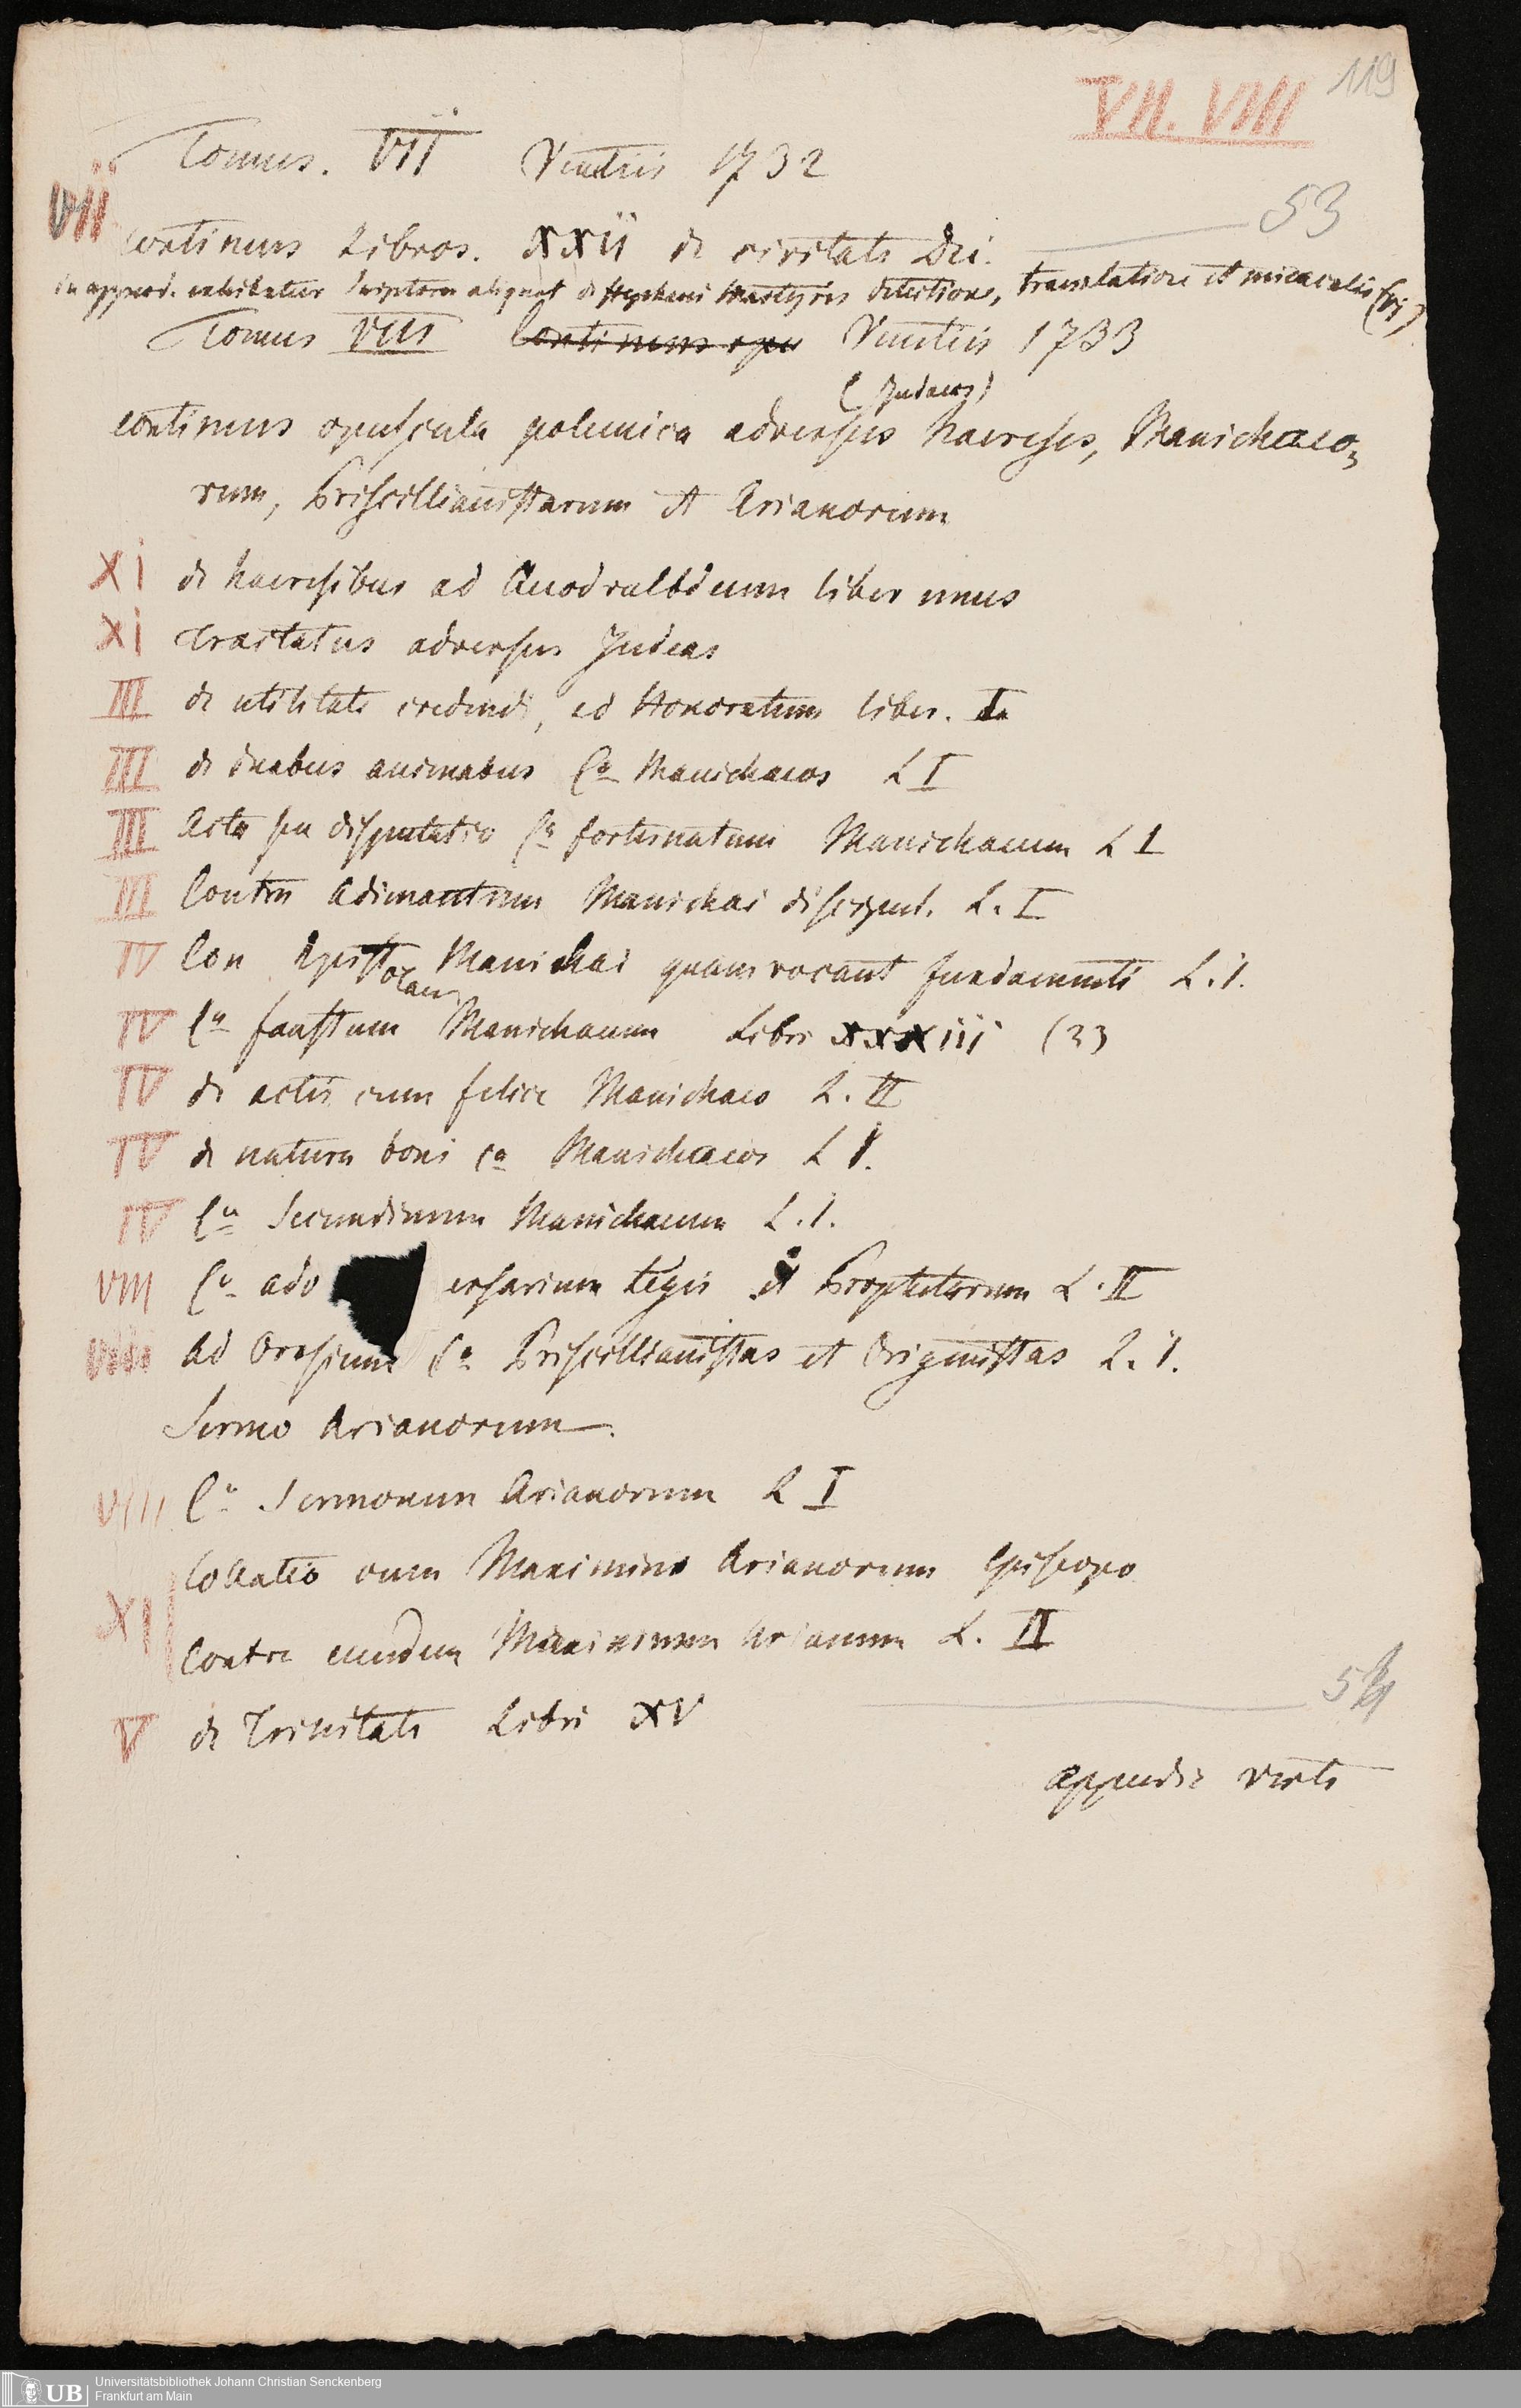 VII. VIII 119
Tomus. VII Venetiis 1732
VII
continens Libros. XXII de civitate Dei. 53
in append. exhibetur Scriptura aliquot de Stephani Martyris detectione, translatione et miraculis
Tomus VIII Continens opu Venetiis 1733
(Judaeos)
continens opuscula polemica adversus haereses, Manichaeo-
rum, Priscillianistarum et Arianorum
XI de haeresibus ad Quodvultdeum liber unus
XI Tractatus adversus Judeas
III de utilitate credendi, ad Honoratum liber. I.
III de duabus animabus Ca Manichaeos L I
III Acta seu disputatio Ca fortunatum Manichaeum L I
III Contra Adimantum Manichai discipul. L. I
IV Con Epistolam Manichai quam vocant fundamenti L. I.
IV Ca faustum Manichaeum Libri XXXIII (33
IV de actis cum felice Manichaeo L. II
IV de natura boni ca Manichaeos L I.
IV Ca Secundinum Manichaeum L. I.
VIII Ca adv ersarium Legis et Prophetarum L. II
VIII Ad Orosium Ca Priscillianistas et Origenistas L. I.
Sermo Arianorum.
VIII Ca Sermonem Arianorum L I
Collatio cum Maximino Arianorum Episcopo
XI
Contra eundem Maximinum Arianum L. II
V de Trinitate Libri XV 54
appendix verte
Universitätsbibliothek Johann Christian Senckenberg
UB Frankfurt am Main